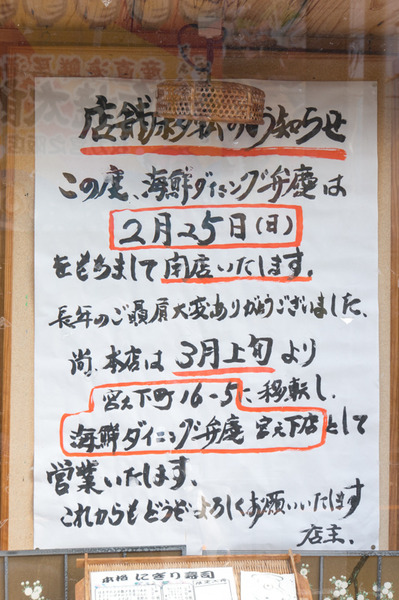 店舗移転のお知らせ
この度、海鮮ダイニング弁慶は
2月25日(日)
をもちまして閉店いたします。
長年のご贔屓大変ありがとうございました、
尚、本店は3月上旬より
宮元下町16-5に移転し、
海鮮ダイニング弁慶 宮元下店として
営業いたします、
これからもどうぞよろしくお願いいたします
店主、
本格 にぎり寿司